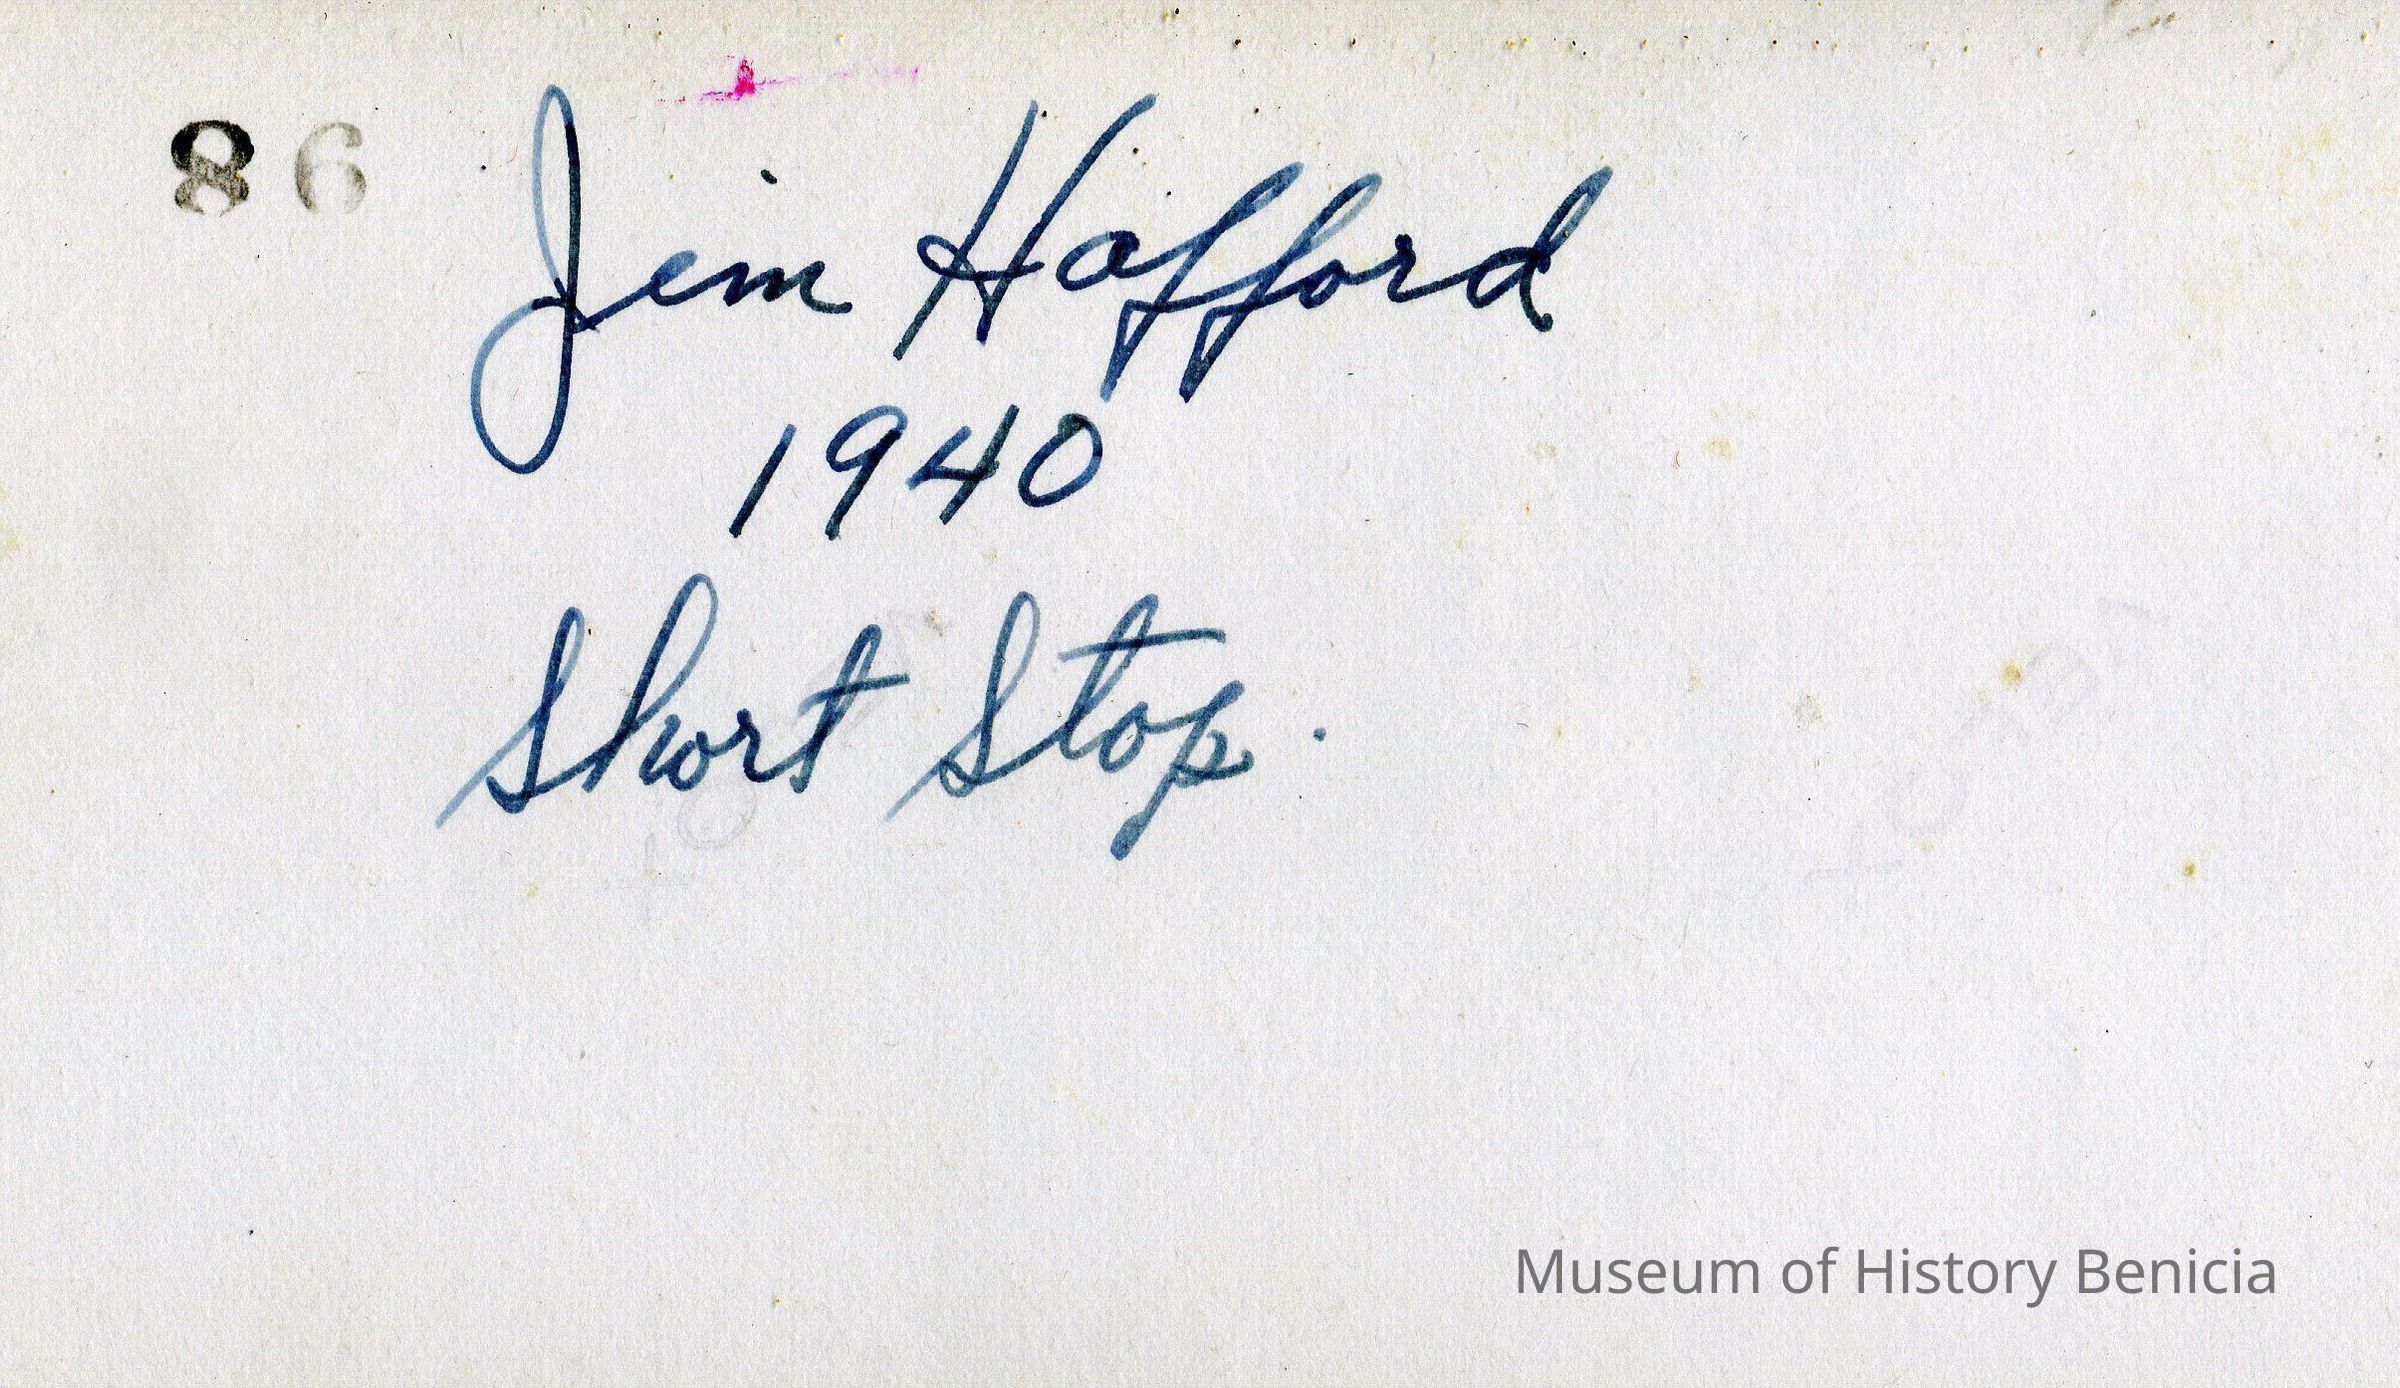 86
Jim Hafford
1940
Short Stop.
Museum of History Benicia